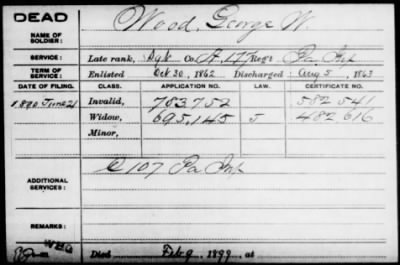 DEAD
Wood, George W.
NAME OF SOLDIER:
SERVICE:
Late rank, Sgt Co. A, 177 Regt Pa Inf
TERM OF SERVICE:
Enlisted Oct 30, 1862 Discharged Aug 5, 1863
DATE OF FILING. CLASS. APPLICATION NO. LAW. CERTIFICATE NO.
1890 June 21 Invalid, 783752 582541
Widow, 695,145 J 482616
Minor,
C 107 Pa Inf
ADDITIONAL SERVICES:
REMARKS:
WHG
Died Feb 9, 1899, at